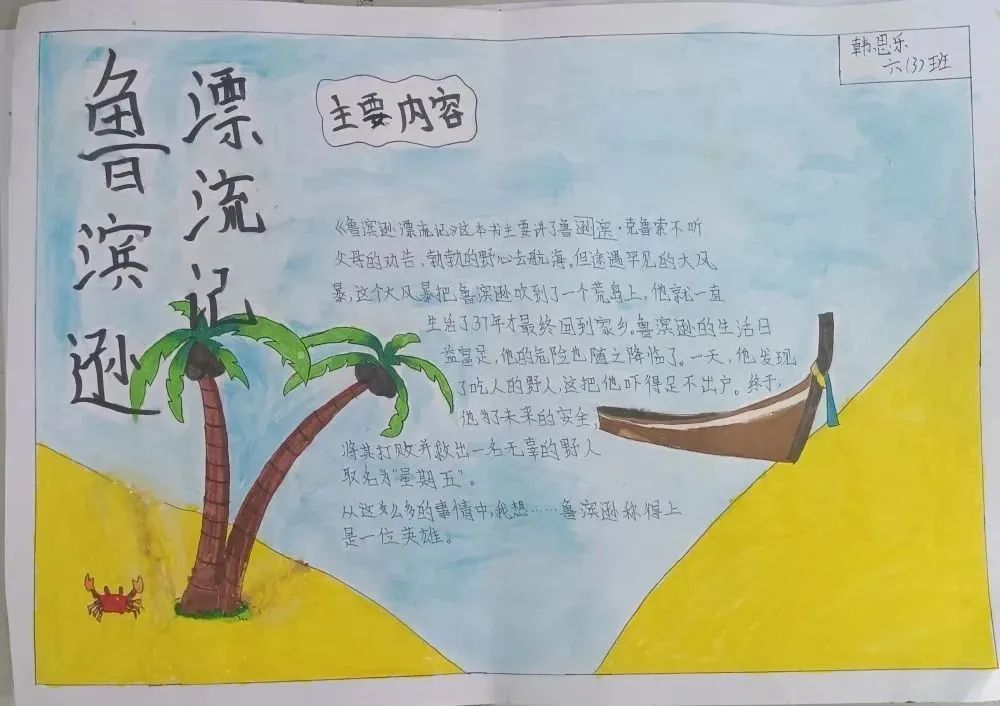 鲁滨逊
漂流记
韩思乐
六(3)班
主要内容
《鲁滨逊漂流记》这本书主要讲了鲁逊滨·克鲁索不听
父母的劝告,勃勃的野心去航海。但途遇罕见的大风
暴,这个大风暴把鲁滨逊吹到了一个荒岛上,他就一直
生活了37年才最终回到家乡。鲁滨逊的生活日
益富足,他的危险也随之降临了。一天,他发现
了吃人的野人,这把他吓得足不出户。终于,
他为了未来的安全,
将其打败并救出一名无辜的野人
取名为"星期五"。
从这么多的事情中,我想……鲁滨逊称得上
是一位英雄。